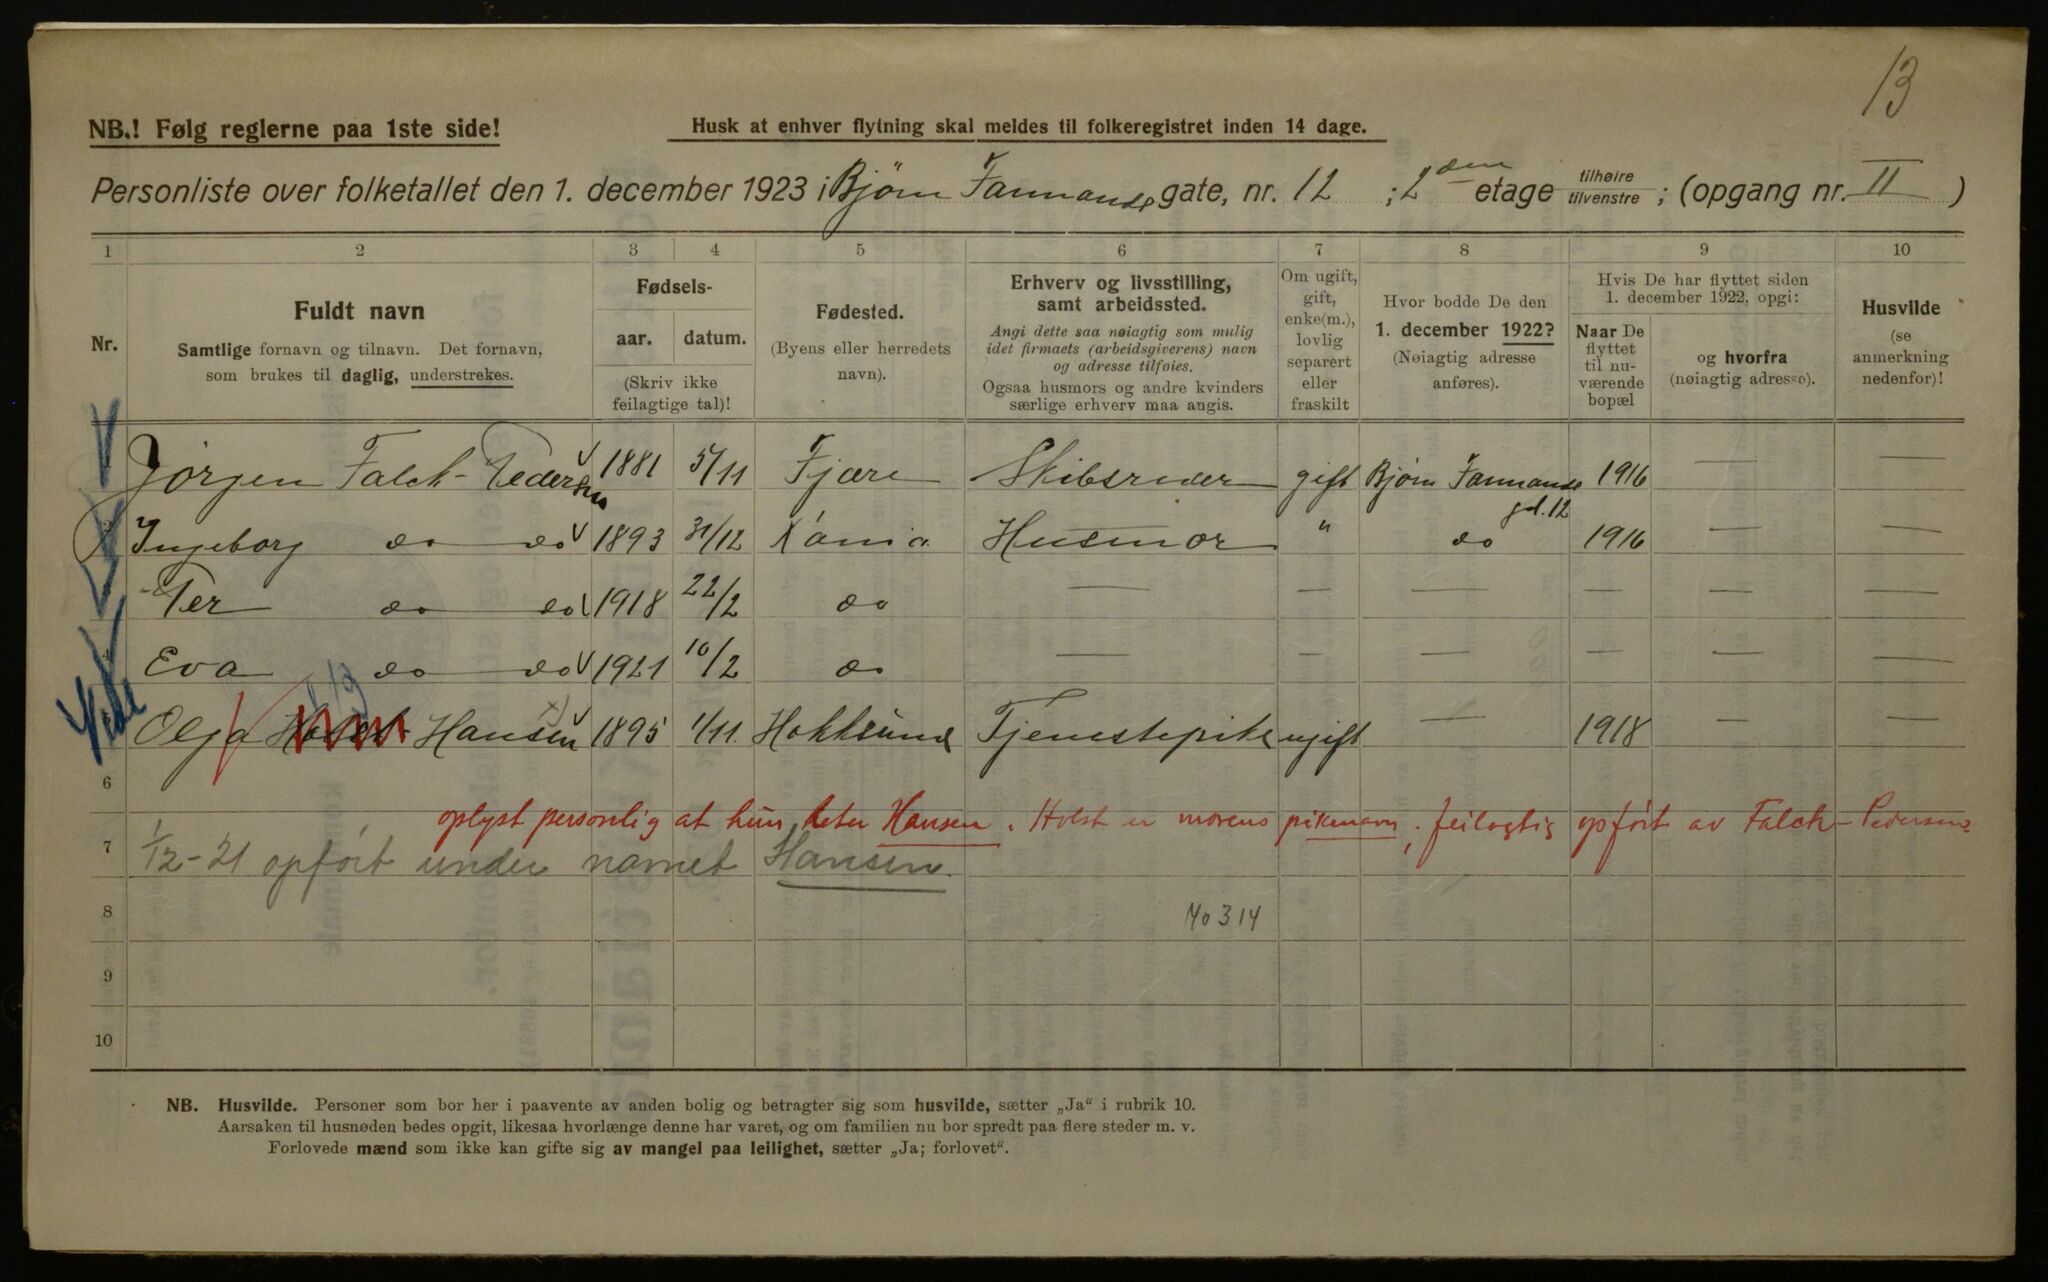 13
NB.! Følg reglerne paa 1ste side!
Husk at enhver flytning skal meldes til folkeregistret inden 14 dage.
Personliste over folketallet den 1. december 1923 i Bjørn Farmands gate, nr. 12 ; 2den etage tilhøire tilvenstre ; (opgang nr. II )
1 2 3 4 5 6 7 8 9 10
Nr.
Fuldt navn
Samtlige fornavn og tilnavn. Det fornavn,
som brukes til daglig, understrekes.
Fødsels-
aar. datum.
(Skriv ikke
feilagtige tal)!
Fødested.
(Byens eller herredets
navn).
Erhverv og livsstilling,
samt arbeidssted.
Angi dette saa nøiagtig som mulig
idet firmaets (arbeidsgiverens) navn
og adresse tilføies.
Ogsaa husmors og andre kvinders
særlige erhverv maa angis.
Om ugift,
gift,
enke(m.),
lovlig
separert
eller
fraskilt
Hvor bodde De den
1. december 1922?
(Nøiagtig adresse
anføres).
Hvis De har flyttet siden
1. december 1922, opgi:
Naar De
flyttet
til nu-
værende
bopæl
og hvorfra
(nøiagtig adresse).
Husvilde
(se
anmerkning
nedenfor)!
Jørgen Falch-Pedersen 1881 5/11 Fjære Skibsreder gift Bjørn Farmands gd. 12 1916 — —
Ingeborg do do 1893 31/12 Kania Husmor " do 1916 — —
Per do do 1918 22/2 do — — — — — —
4 Eva do do 1921 10/2 do — — — — — —
Olga Holst Hansen x) 1895 1/11 Hokksund Tjenestepike ugift — 1918 — —
6
oplyst personlig at hun heter Hansen. Holst er morens pikenavn, feilagtig opført av Falch-Pedersen
7 1/12-21 opført under navnet Hansen.
8 40314
9
10
NB. Husvilde. Personer som bor her i paavente av anden bolig og betragter sig som husvilde, sætter „Ja“ i rubrik 10.
Aarsaken til husnøden bedes opgit, likesaa hvorlænge denne har varet, og om familien nu bor spredt paa flere steder m. v.
Forlovede mænd som ikke kan gifte sig av mangel paa leilighet, sætter „Ja; forlovet“.